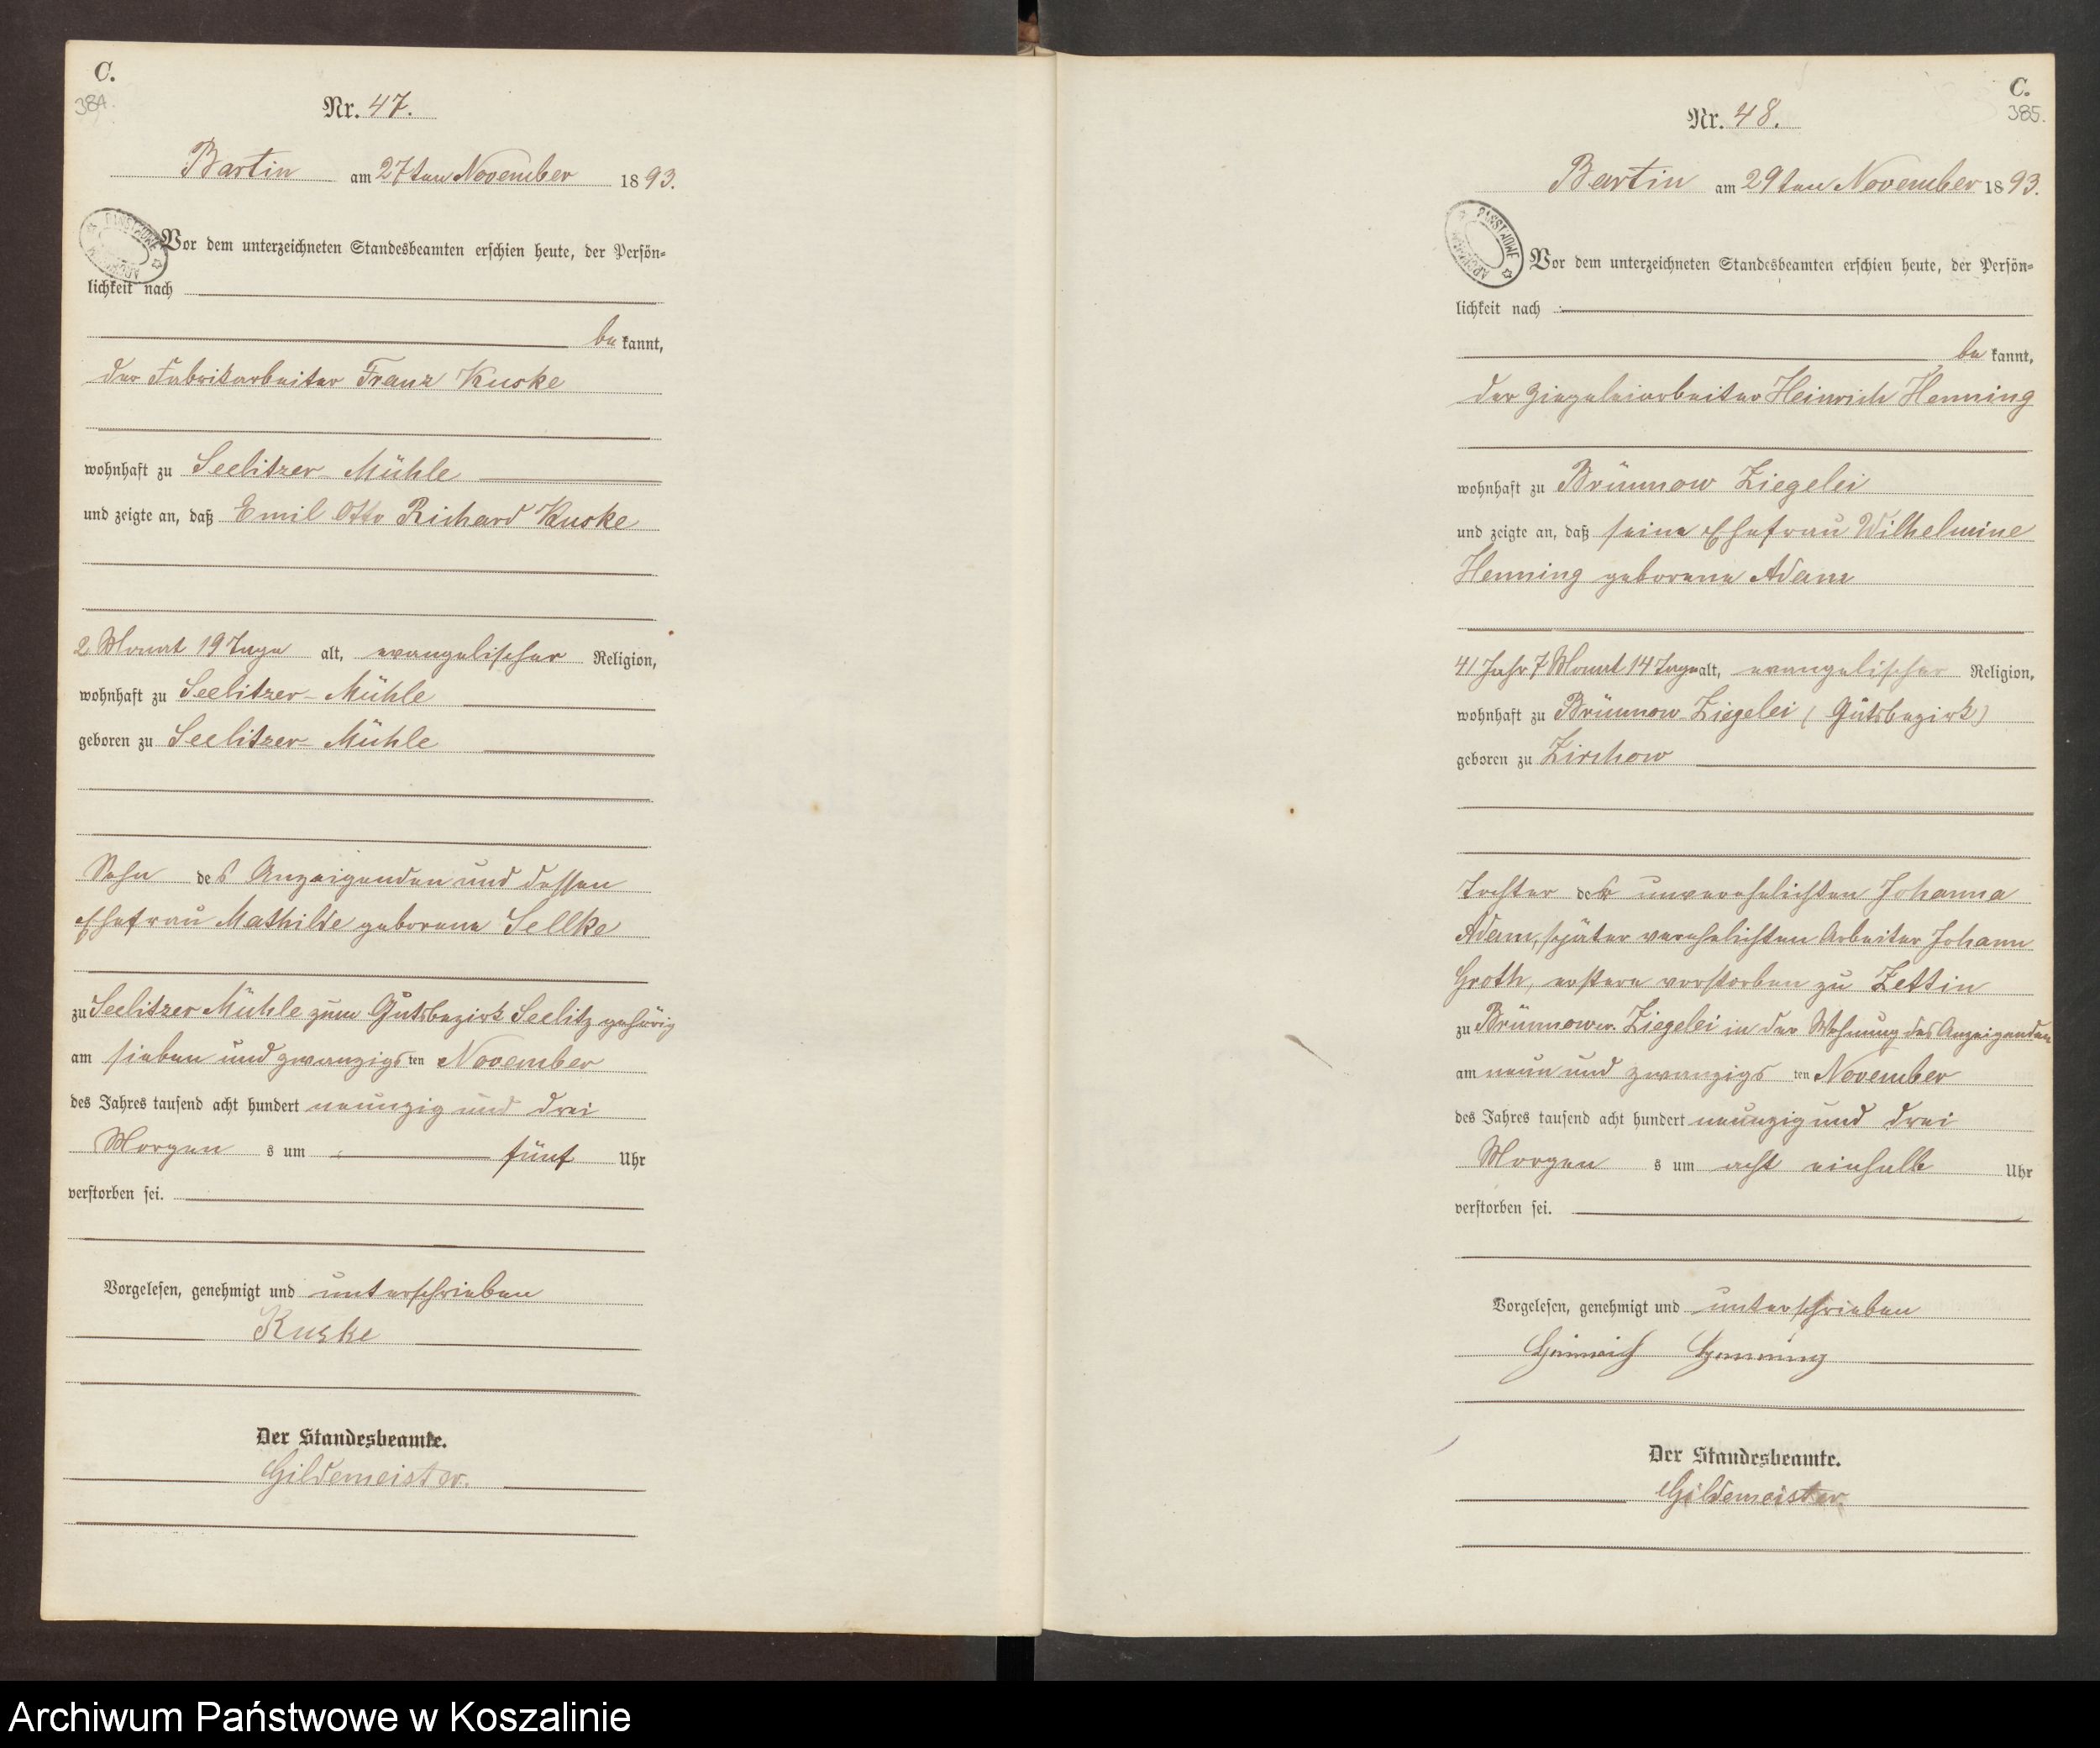 C.
384.
Nr. 47.
Bartin am 27ten November 1893.
Vor dem unterzeichneten Standesbeamten erschien heute, der Persön-
lichkeit nach
bekannt,
der Fabrikarbeiter Franz Kuske
wohnhaft zu Seelitzer-Mühle
und zeigte an, daß Emil Otto Richard Kuske
2 Monat 19 Tage alt, evangelischer Religion,
wohnhaft zu Seelitzer-Mühle
geboren zu Seelitzer-Mühle
Sohn des Anzeigenden und dessen
Ehefrau Mathilde geborene Sellke
zu Seelitzer Mühle zum Gutsbezirk Seelitz gehörig
am sieben und zwanzigsten November
des Jahres tausend acht hundert neunzig und drei
Morgens um fünf Uhr
verstorben sei.
Vorgelesen, genehmigt und unterschrieben
Kuske
Der Standesbeamte.
Gildemeister.
C.
385.
Nr. 48.
Bartin am 29ten November 1893.
PAŃSTWOWE ARCHIWUM
Vor dem unterzeichneten Standesbeamten erschien heute, der Persön-
lichkeit nach
bekannt,
der Ziegeleiarbeiter Heinrich Henning
wohnhaft zu Brünnow Ziegelei
und zeigte an, daß seine Ehefrau Wilhelmine
Henning geborene Adam
41 Jahr 7 Monat 14 Tage alt, evangelischer Religion,
wohnhaft zu Brünnow Ziegelei (Gutsbezirk)
geboren zu Zirchow
Tochter der unverehelichten Johanna
Adam, später verehelichten Arbeiter Johann
Groth, erstere verstorben zu Zettin
zu Brünnower Ziegelei in der Wohnung des Anzeigenden
am neun und zwanzigsten November
des Jahres tausend acht hundert neunzig und drei
Morgens um acht einhalb Uhr
verstorben sei.
Vorgelesen, genehmigt und unterschrieben
Heinrich Henning
Der Standesbeamte.
Gildemeister
Archiwum Państwowe w Koszalinie